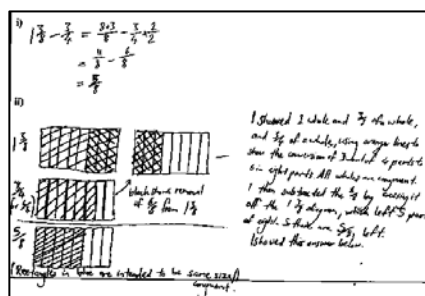 i)
1 3/8 - 3/4 = (8+3)/8 - 3/4 × 2/2
= 11/8 - 6/8
= 5/8
ii)
1 3/8
black shows removal
of 6/8 from 1 3/8
5/8
(Rectangles in are intended to be same size /
congruent.
I showed 1 whole and 3/8 of a whole,
and 3/4 of a whole, using orange lines to
show the conversion of 3 out of 4 parts to
6 in eight parts. All wholes are congruent.
I then subtracted the 6/8 by crossing it
off the 1 3/8 diagram, which left 5 parts
of eight. So there are 5/8 left.
I showed this answer below.